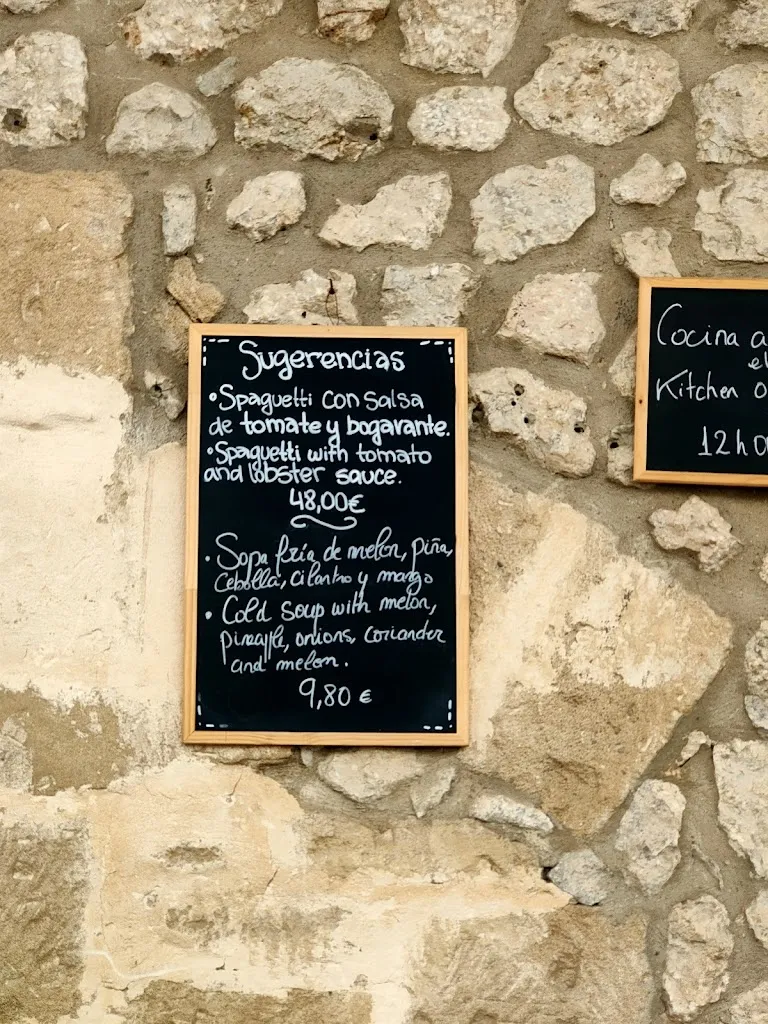 Sugerencias
•Spaguetti con salsa
de tomate y bogavante.
•Spaguetti with tomato
and lobster sauce.
48,00€
• Sopa fría de melon, piña,
cebolla, cilantro y mango
• Cold soup with melon,
pineapple, onions, coriander
and melon.
9,80 €
Cocina a
el
Kitchen o
12h0